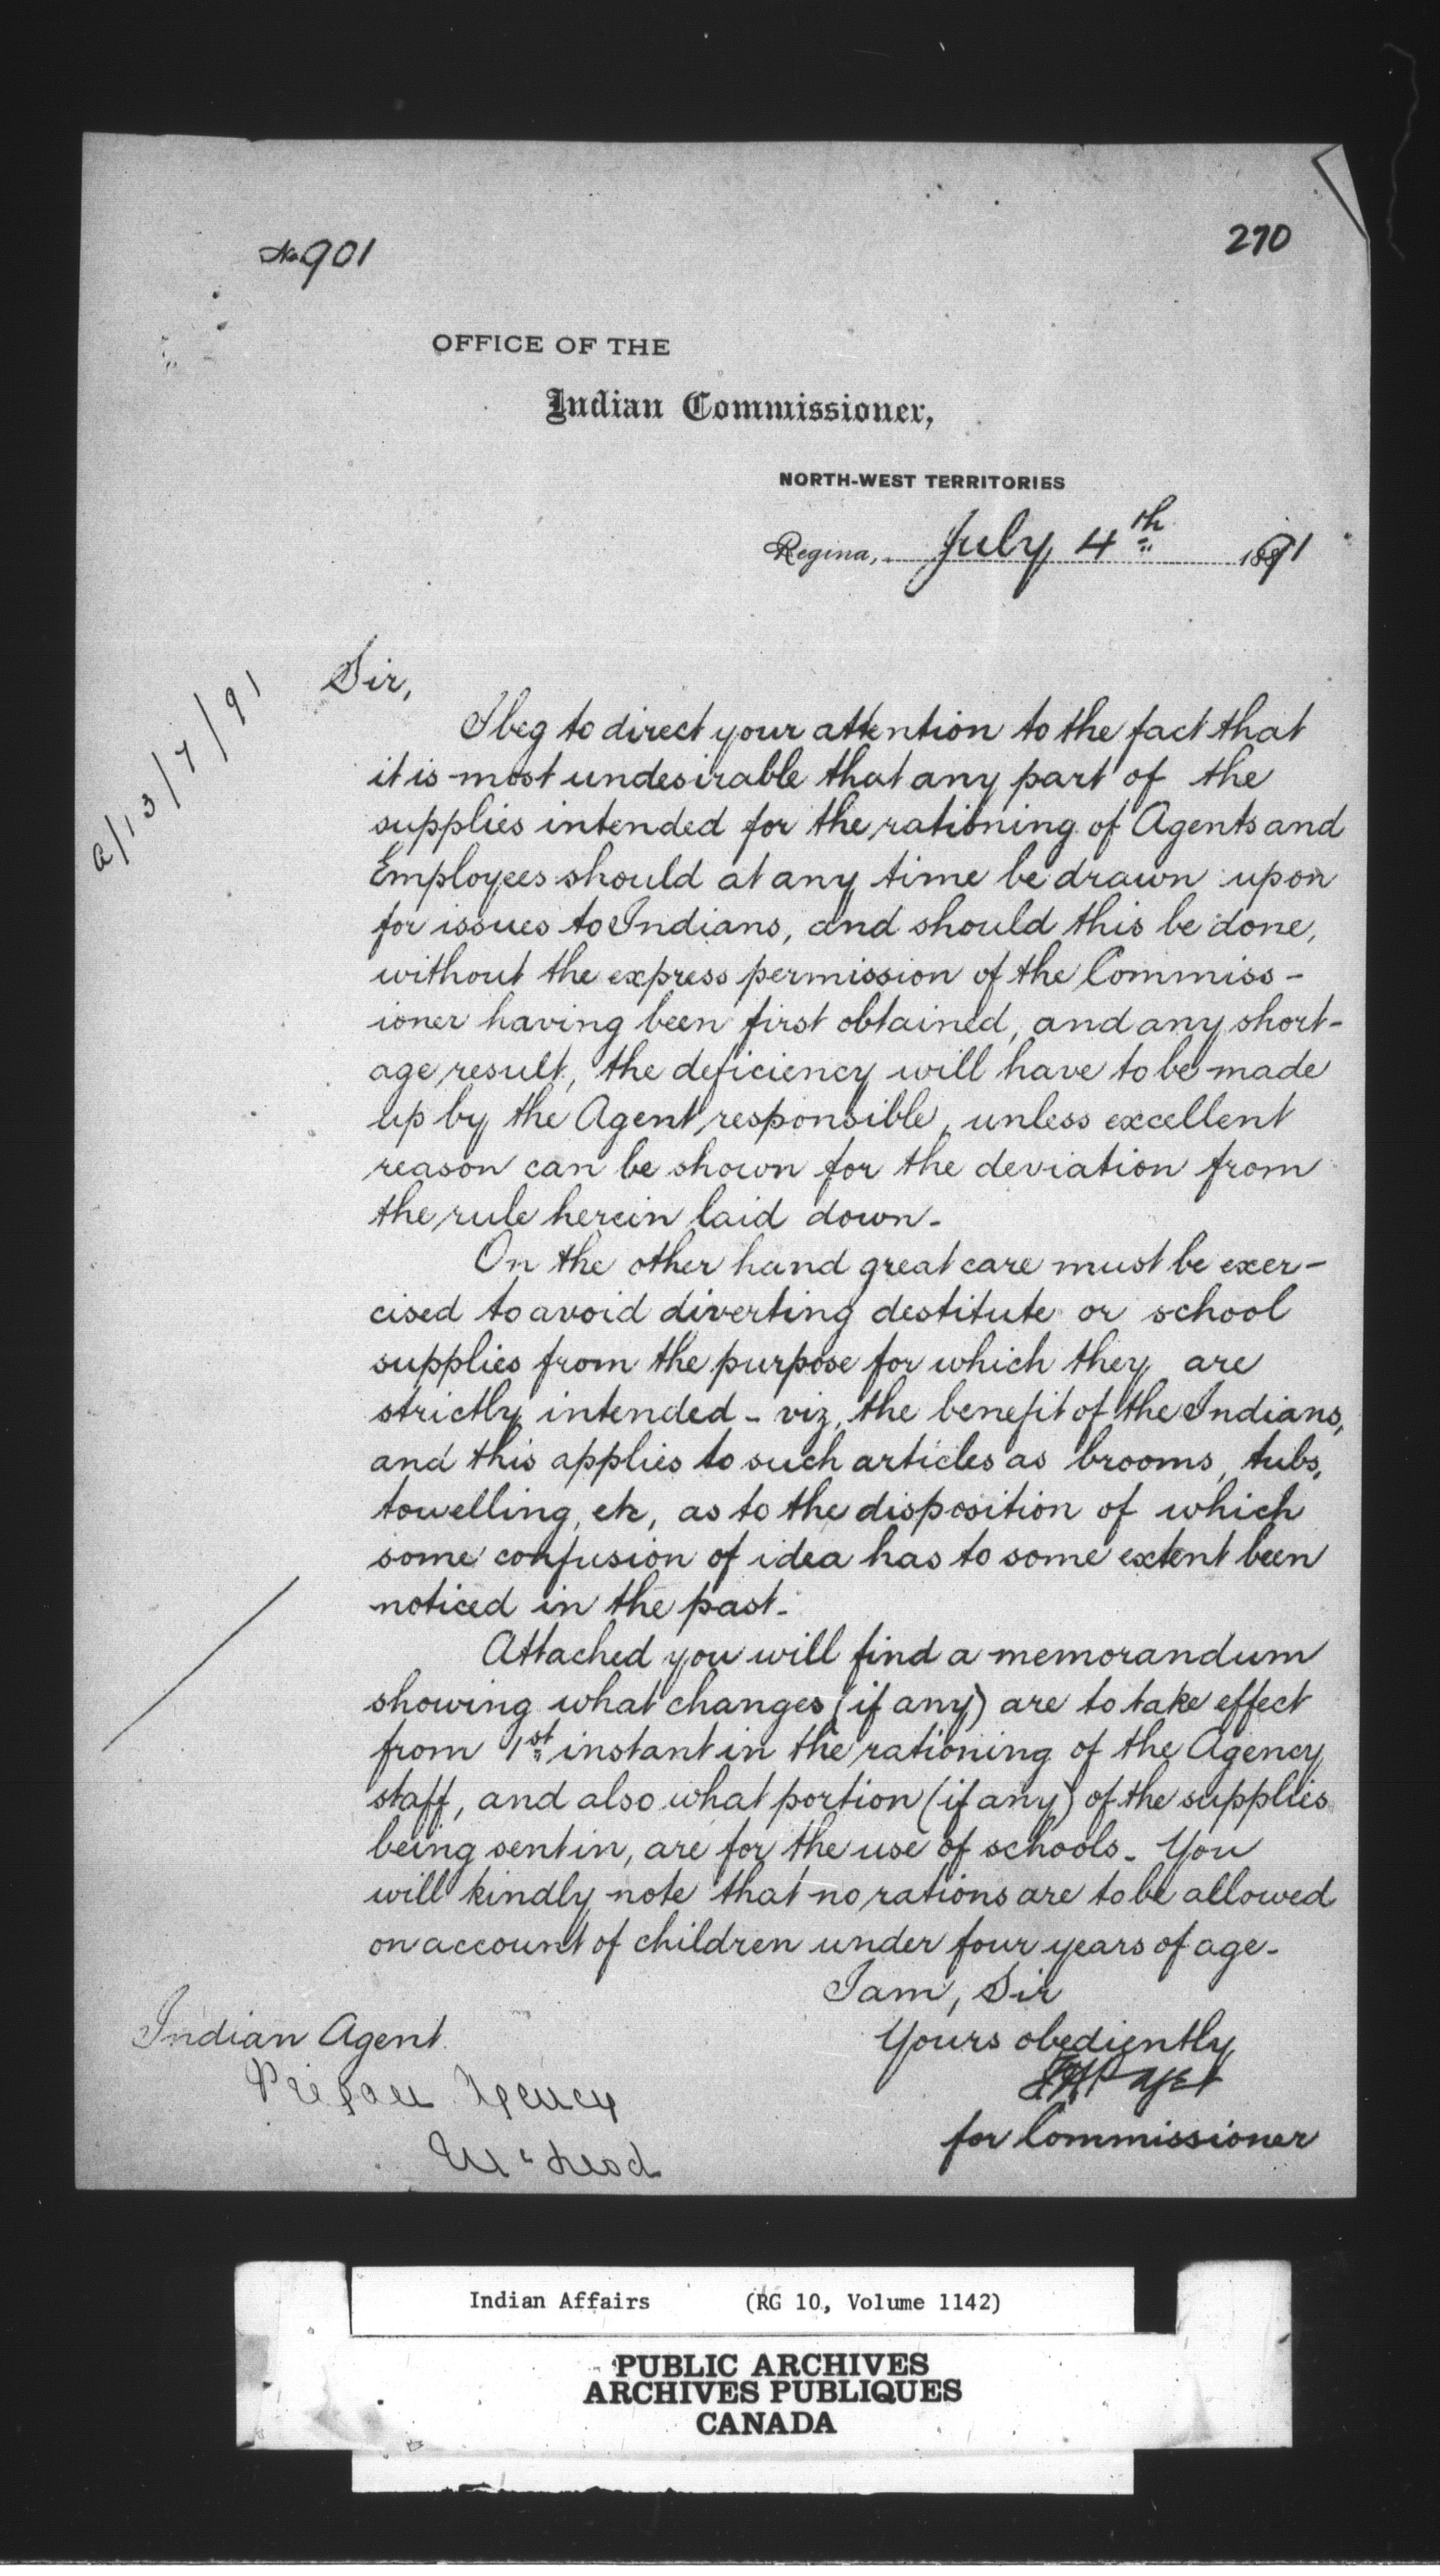 No 901
270
OFFICE OF THE
Indian Commissioner,
NORTH-WEST TERRITORIES
Regina, July 4th 1891
a/13/7/91
Sir,
I beg to direct your attention to the fact that
it is most undesirable that any part of the
supplies intended for the rationing of Agents and
Employees should at any time be drawn upon
for issues to Indians, and should this be done,
without the express permission of the Commiss-
ioner having been first obtained, and any short-
age result, the deficiency will have to be made
up by the Agent responsible, unless excellent
reason can be shown for the deviation from
the rule herein laid down-
On the other hand great care must be exer-
cised to avoid diverting destitute or school
supplies from the purpose for which they are
strictly intended - viz, the benefit of the Indians,
and this applies to such articles as brooms, tubs,
towelling, etc, as to the disposition of which
some confusion of idea has to some extent been
noticed in the past-
Attached you will find a memorandum
showing what changes (if any) are to take effect
from 1st instant in the rationing of the Agency
staff, and also what portion (if any) of the supplies
being sent in, are for the use of schools- You
will kindly note that no rations are to be allowed
on account of children under four years of age-
I am, Sir
Yours obediently
for Commissioner
Indian Agent
Piegan Agency
McLeod
Indian Affairs (RG 10, Volume 1142)
PUBLIC ARCHIVES
ARCHIVES PUBLIQUES
CANADA